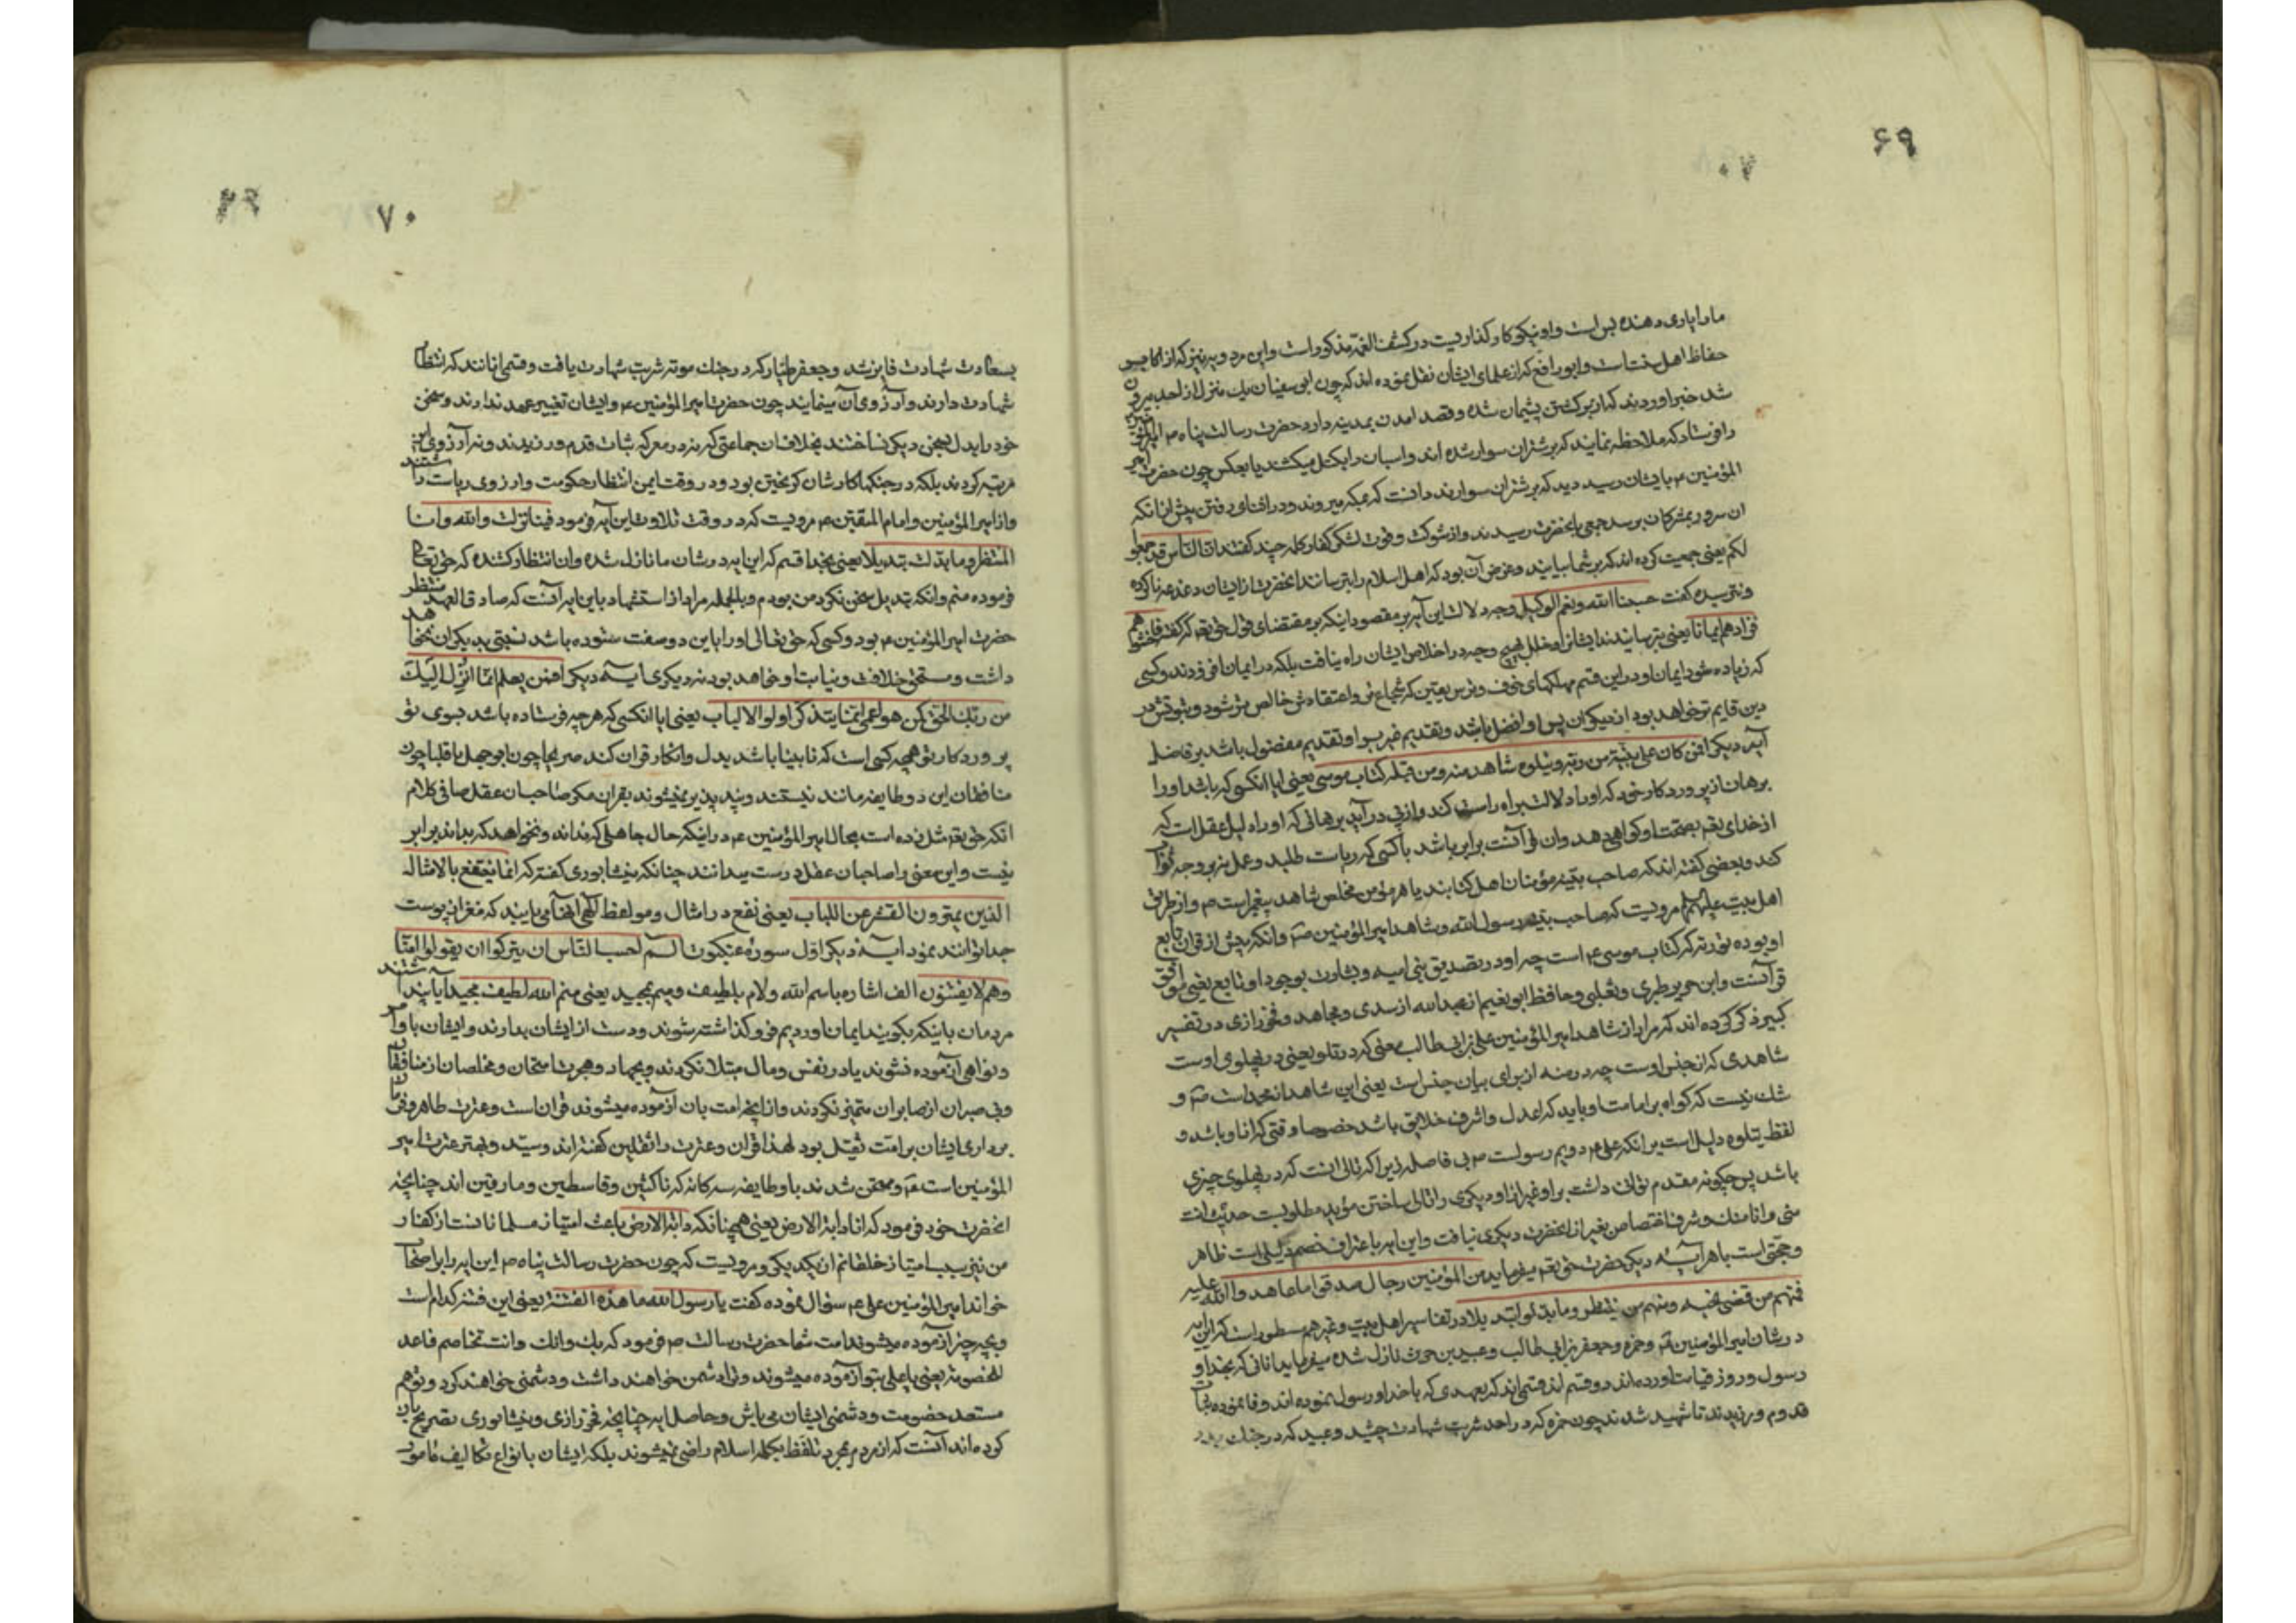 ۶۹
۷۰
ما را یاری دهنده بس است و او نیکو کار گذاریست در کشف الغمه مذکور است و ابن مردویه نیز که از اکابر
حفاظ اهل سنت است و ابو رافع که از علمای ایشان نقل نموده اند که چون ابی سفیان یک منزل از احد بیرون
شد خبر اوردند که از برگشتن پشیمان شده و قصد امدن بمدینه دارد حضرت رسالت پناه ص امیر
را فرستاد که ملاحظه نمایند که بر شتران سوار شده اند و اسبان را بکتل میکشند یا بعکس چون حضرت امیر
المؤمنین ع بایشان رسید دید که بر شتران سوارند دانست که بمکه میروند و در اثنای رفتن پیش از انکه
ان سرور بمشرکان برسد جمعی بانحضرت رسیدند و از شوکت و قوت لشکر کفار کله چند گفتند ان الناس قد جمعوا
لکم یعنی جمعیت کرده اند که بر شما بیایند و غرض آن بود که اهل اسلام را بترسانند انحضرت از ایشان دغدغه ناکرده
و نترسیده گفت حسبنا الله و نعم الوکیل وجه دلالت این آیه بر مقصود اینکه بر مقتضای قول حق تع که گفته فاخشوهم
فزادهم ایمانا یعنی بترسانیدند ایشانرا و خلل بهیچ وجه در اخلاص ایشان راه نیافت بلکه در ایمان افزودند و کسی
که زیاده شود ایمان او در این قسم مهلکهای خوف و ترس یقین که شجاع تر و اعتقادش خالص تر شود و ثبوتش در
دین قایم تر خواهد بود از دیگران پس او افضل باشد و تقدیم غیر بر او تقدیم مفضول باشد بر فاضل
آیه دیگر افمن کان علی بینة من ربه و یتلوه شاهد منه و من قبله کتاب موسی یعنی ایا انکسی که باشد او را
برهان از پروردگار خود که او را دلالت براه راست کند و از پی در آید برهانی که او را دلیل عقل است که
از خدای تع بصحت او گواهی دهد و ان قرآنست برابر باشد با کسی که ریاست طلبد و عمل نه بر وجه قرآن
کند و بعضی گفته اند که صاحب بینه مؤمنان اهل کتابند یا هر مؤمن مخلص شاهد پیغمبر است ص و از طریق
اهل بیت علیهم مرویست که صاحب بینه رسول الله و شاهد امیر المؤمنین ع و انکه پیش از قران تابع
او بوده توریه که کتاب موسی ع است چه او در تصدیق نبی امیه و بشارت بوجود او تابع یعنی موافق
قرآنست و ابن جریر طبری و ثعلبی و حافظ ابو نعیم از عبد الله از سدی و مجاهد و فخر رازی در تفسیر
کبیر ذکر کرده اند که مراد از شاهد امیر المؤمنین علی بن ابی طالب یعنی که در تلو یعنی در پهلوی اوست
شاهدی که از جنس اوست چه در منه از برای بیان جنس است یعنی این شاهد از محمد است ص و
شک نیست که گواه بر امامت او باید که اعدل و اشرف خلایق باشد خصوصا وقتی که از او باشد و
لفظ یتلوه دلیل است بر انکه علی ع دویم رسولست ص بی فاصله زیرا که تالی انست که در پهلوی چیزی
باشد پس چگونه مقدم توان داشت بر او غیر از او دیگری را تالی ساختن مؤید مطلوبست حدیث انت
منی و انا منک و شرف اختصاص بغیر از انحضرت دیگری نیافت و این ایه باعتراف خصم دلیلی است ظاهر
و حجتی است باهر آیه دیگر حضرت حق تع میفرماید من المؤمنین رجال صدقوا ما عاهدوا الله علیه
فمنهم من قضی نحبه و منهم من ینتظر و ما بدلوا تبدیلا در تفاسیر اهل بیت و غیرهم مسطور است که این ایه
در شان امیر المؤمنین ع و حمزه و جعفر بن ابی طالب و عبید بن حرث نازل شده میفرماید انانی که بخدا و
رسول و روز قیامت اورده اند دو قسم اند قسمی اند که بعهدی که با خدا و رسول نموده اند وفا نموده ثبات
قدم ورزیدند تا شهید شدند چون حمزه که در احد شربت شهادت چشید و عبید که در جنک بدر
بسعادت شهادت فایز شد و جعفر طیار که در جنک موته شربت شهادت یافت و قسمی انانند که انتظار
شهادت دارند و آرزوی آن مینمایند چون حضرت امیر المؤمنین ع و ایشان تغییر عهد ندارند و سخن
خود را بدل بسخن دیگر نساختند بخلاف ان جماعتی که نه در معرکه ثبات قدم ورزیدند و نه آرزوی این
مرتبه کردند بلکه در جنکها کارشان گریختن بود و در وقت ایمن انتظار حکومت و ارزوی ریاست داشتند
و از امیر المؤمنین و امام المتقین ع مرویست که در وقت تلاوت این آیه فرمود فینا نزلت والله و انا
المنتظر و ما بدلت تبدیلا یعنی بخدا قسم که این ایه در شان ما نازل شده و ان انتظار کشنده که حق تعالی
فرموده منم و انکه تبدیل سخن نکرد من بودم و بالجمله مراد از استشهاد باین ایه آنست که صادق العهد منتظر
حضرت امیر المؤمنین ع بود و کسی که حق تعالی او را باین دو صفت ستوده باشد نسبتی بدیگران نخواهد
داشت و مستحق خلافت و نیابت او خواهد بود نه دیگری آیه دیگر افمن یعلم انما انزل الیک
من ربک الحق کمن هو اعمی انما یتذکر اولوا الالباب یعنی ایا انکسی که هر چه فرستاده باشد بسوی تو
پروردگار تو همچه کسی است که نابینا باشد بدل و انکار قران کند صریحا چون ابو جهل یا قلبا چون
منافقان این دو طایفه مانند نیستند و پند پذیر نمیشوند بقران مگر صاحبان عقل صافی کلام
انکه حق تع مثل زده است بحال امیر المؤمنین ع در اینکه حال جاهلی که نداند و نخواهد که بداند برابر
نیست و این معنی را صاحبان عقل درست میدانند چنانکه نیشابوری گفته که انما ینتفع بالامثال
الذین یمیزون القشر عن اللباب یعنی نفع در امثال و مواعظ الهی انها می یابند که مغز از پوست
جدا توانند نمود آیه دیگر اول سورهٔ عنکبوت الم احسب الناس ان یترکوا ان یقولوا آمنا
و هم لا یفتنون الف اشاره باسم الله و لام بلطیف و میم بمجید یعنی منم الله لطیف مجید آیا پنداشتند
مردمان باینکه بگویند ایمان اوردیم فرو گذاشته شوند و دست از ایشان بدارند و ایشان باوامر
و نواهی آزموده نشوند یا در نفس و مال مبتلا نگردند و بجهاد و هجرت امتحان و مخلصان از منافقان
و بی صبران از صابران متمیز نگردند و از انچه امت بان آزموده میشوند قران است و عترت طاهره و فرمان
برداری ایشان بر امت ثقیل بود لهذا قران و عترت را ثقلین گفته اند و سید و بهتر عترت امیر
المؤمنین است ع و ممتحن شدند باو طایفه سه گانه که ناکثین و قاسطین و مارقین اند چنانچه
انحضرت خود فرمود که انا دابة الارض یعنی همچنانکه دابة الارض باعث امتیاز مسلمانانست از کفار
من نیز سبب امتیاز خلقانم از یکدیگر و مرویست که چون حضرت رسالت پناه ص این ایه را بر اصحاب
خواند امیر المؤمنین علی ع سؤال نموده گفت یا رسول الله ما هذه الفتنة یعنی این فتنه کدام است
و بچه چیز آزموده میشوند امت شما حضرت رسالت ص فرمود که بک و انک و انت تخاصم فاعد
للخصومة یعنی یا علی بتو آزموده میشوند و ترا دشمن خواهند داشت و دشمنی خواهند کرد و تو هم
مستعد خصومت و دشمنی ایشان می باش و حاصل ایه چنانچه فخر رازی و نیشابوری تصریح بان
کرده اند آنست که از مردم بمجرد تلفظ بکلمه اسلام راضی نمیشوند بلکه ایشان بانواع تکالیف مامور